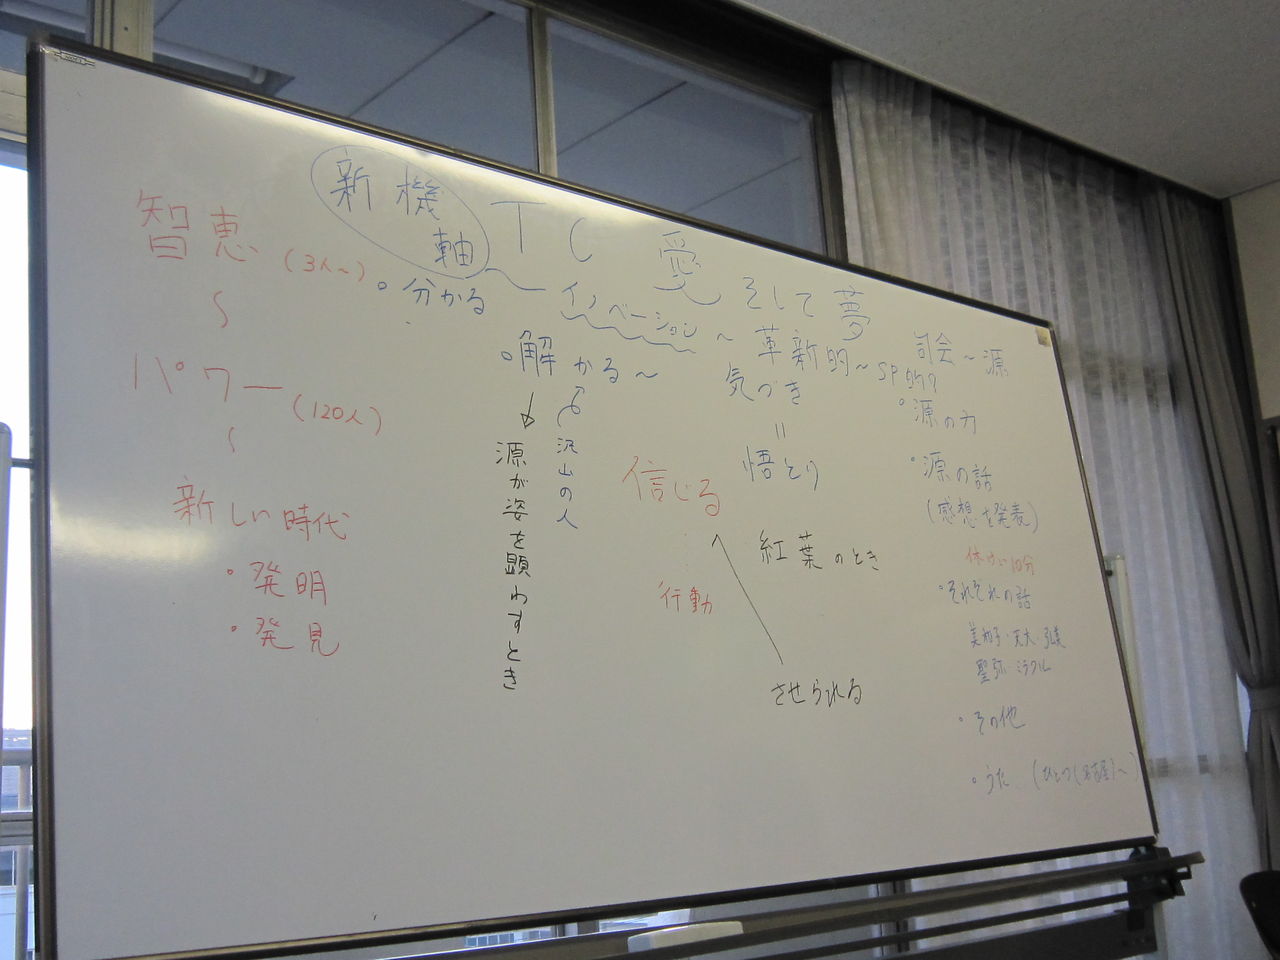 智恵(3人～)
～
パワー(120人)
～
新しい時代
・発明
・発見
新機軸
TC 愛 そして夢
～イノベーション～革新的～SP的?
・分かる
・解かる～
沢山の人
源が姿を顕わすとき
気づき
=
悟とり
信じる
行動
紅葉のとき
させられる
司会～源
・源の力
・源の話
(感想を発表)
休けい10分
・それぞれの話
・その他
・うた